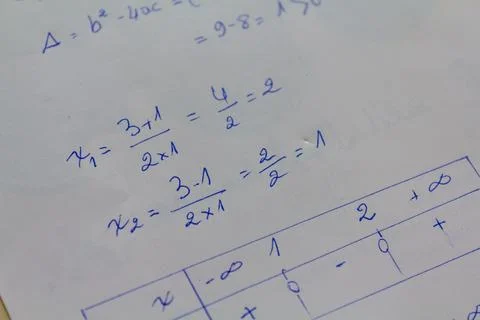 Δ = b² - 4ac =
= 9-8 = 1 >0
x₁ = 3+1 / 2×1 = 4/2 = 2
x₂ = 3-1 / 2×1 = 2/2 = 1
x -∞ 1 2 +∞
+ 0 - 0 +